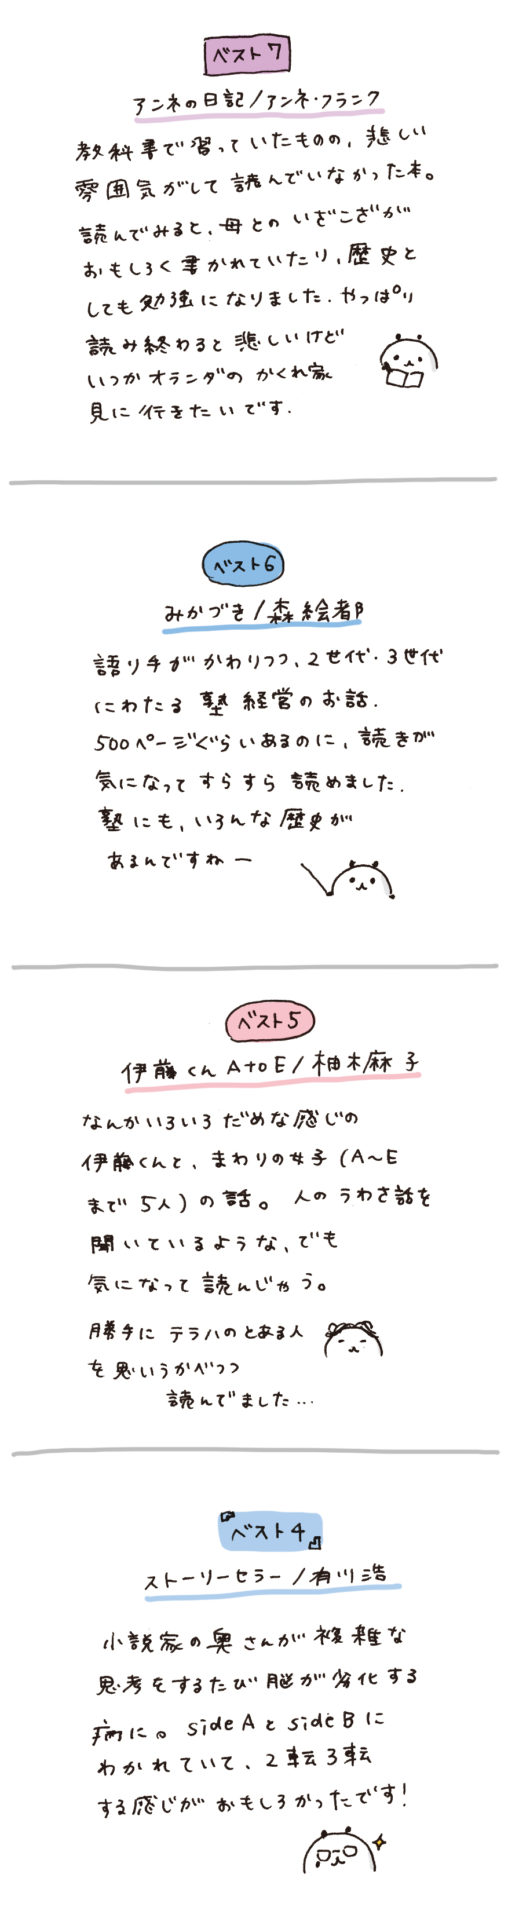 ベスト7
アンネの日記/アンネ・フランク
教科書で習っていたものの、悲しい
雰囲気がして読んでいなかった本。
読んでみると、母とのいざこざが
おもしろく書かれていたり、歴史と
しても勉強になりました.やっぱり
読み終わると悲しいけど
いつかオランダのかくれ家
見に行きたいです.
ベスト6
みかづき/森絵都
語り手がかわりつつ、2世代・3世代
にわたる塾経営のお話.
500ページぐらいあるのに、読きが
気になってすらすら読めました.
塾にも、いろんな歴史が
あるんですねー
ベスト5
伊藤くんAtoE/柚木麻子
なんかいろいろだめな感じの
伊藤くんと、まわりの女子(A〜E
まで5人)の話。人のうわさ話を
聞いているような、でも
気になって読んじゃう。
勝手にテラハのとある人
を思いうかべつつ
読んでました…
『ベスト4』
ストーリーセラー/有川浩
小説家の奥さんが複雑な
思考をするたび脳が劣化する
病に。sideAとsideBに
わかれていて、2転3転
する感じがおもしろかったです!